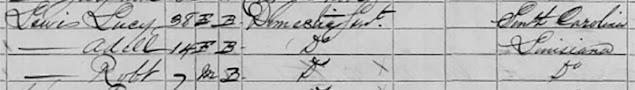 Lewis Lucy 38 F B Domestic Servt. South Carolina
— Adell 14 F B Do Louisiana
— Robt 7 M B D Do